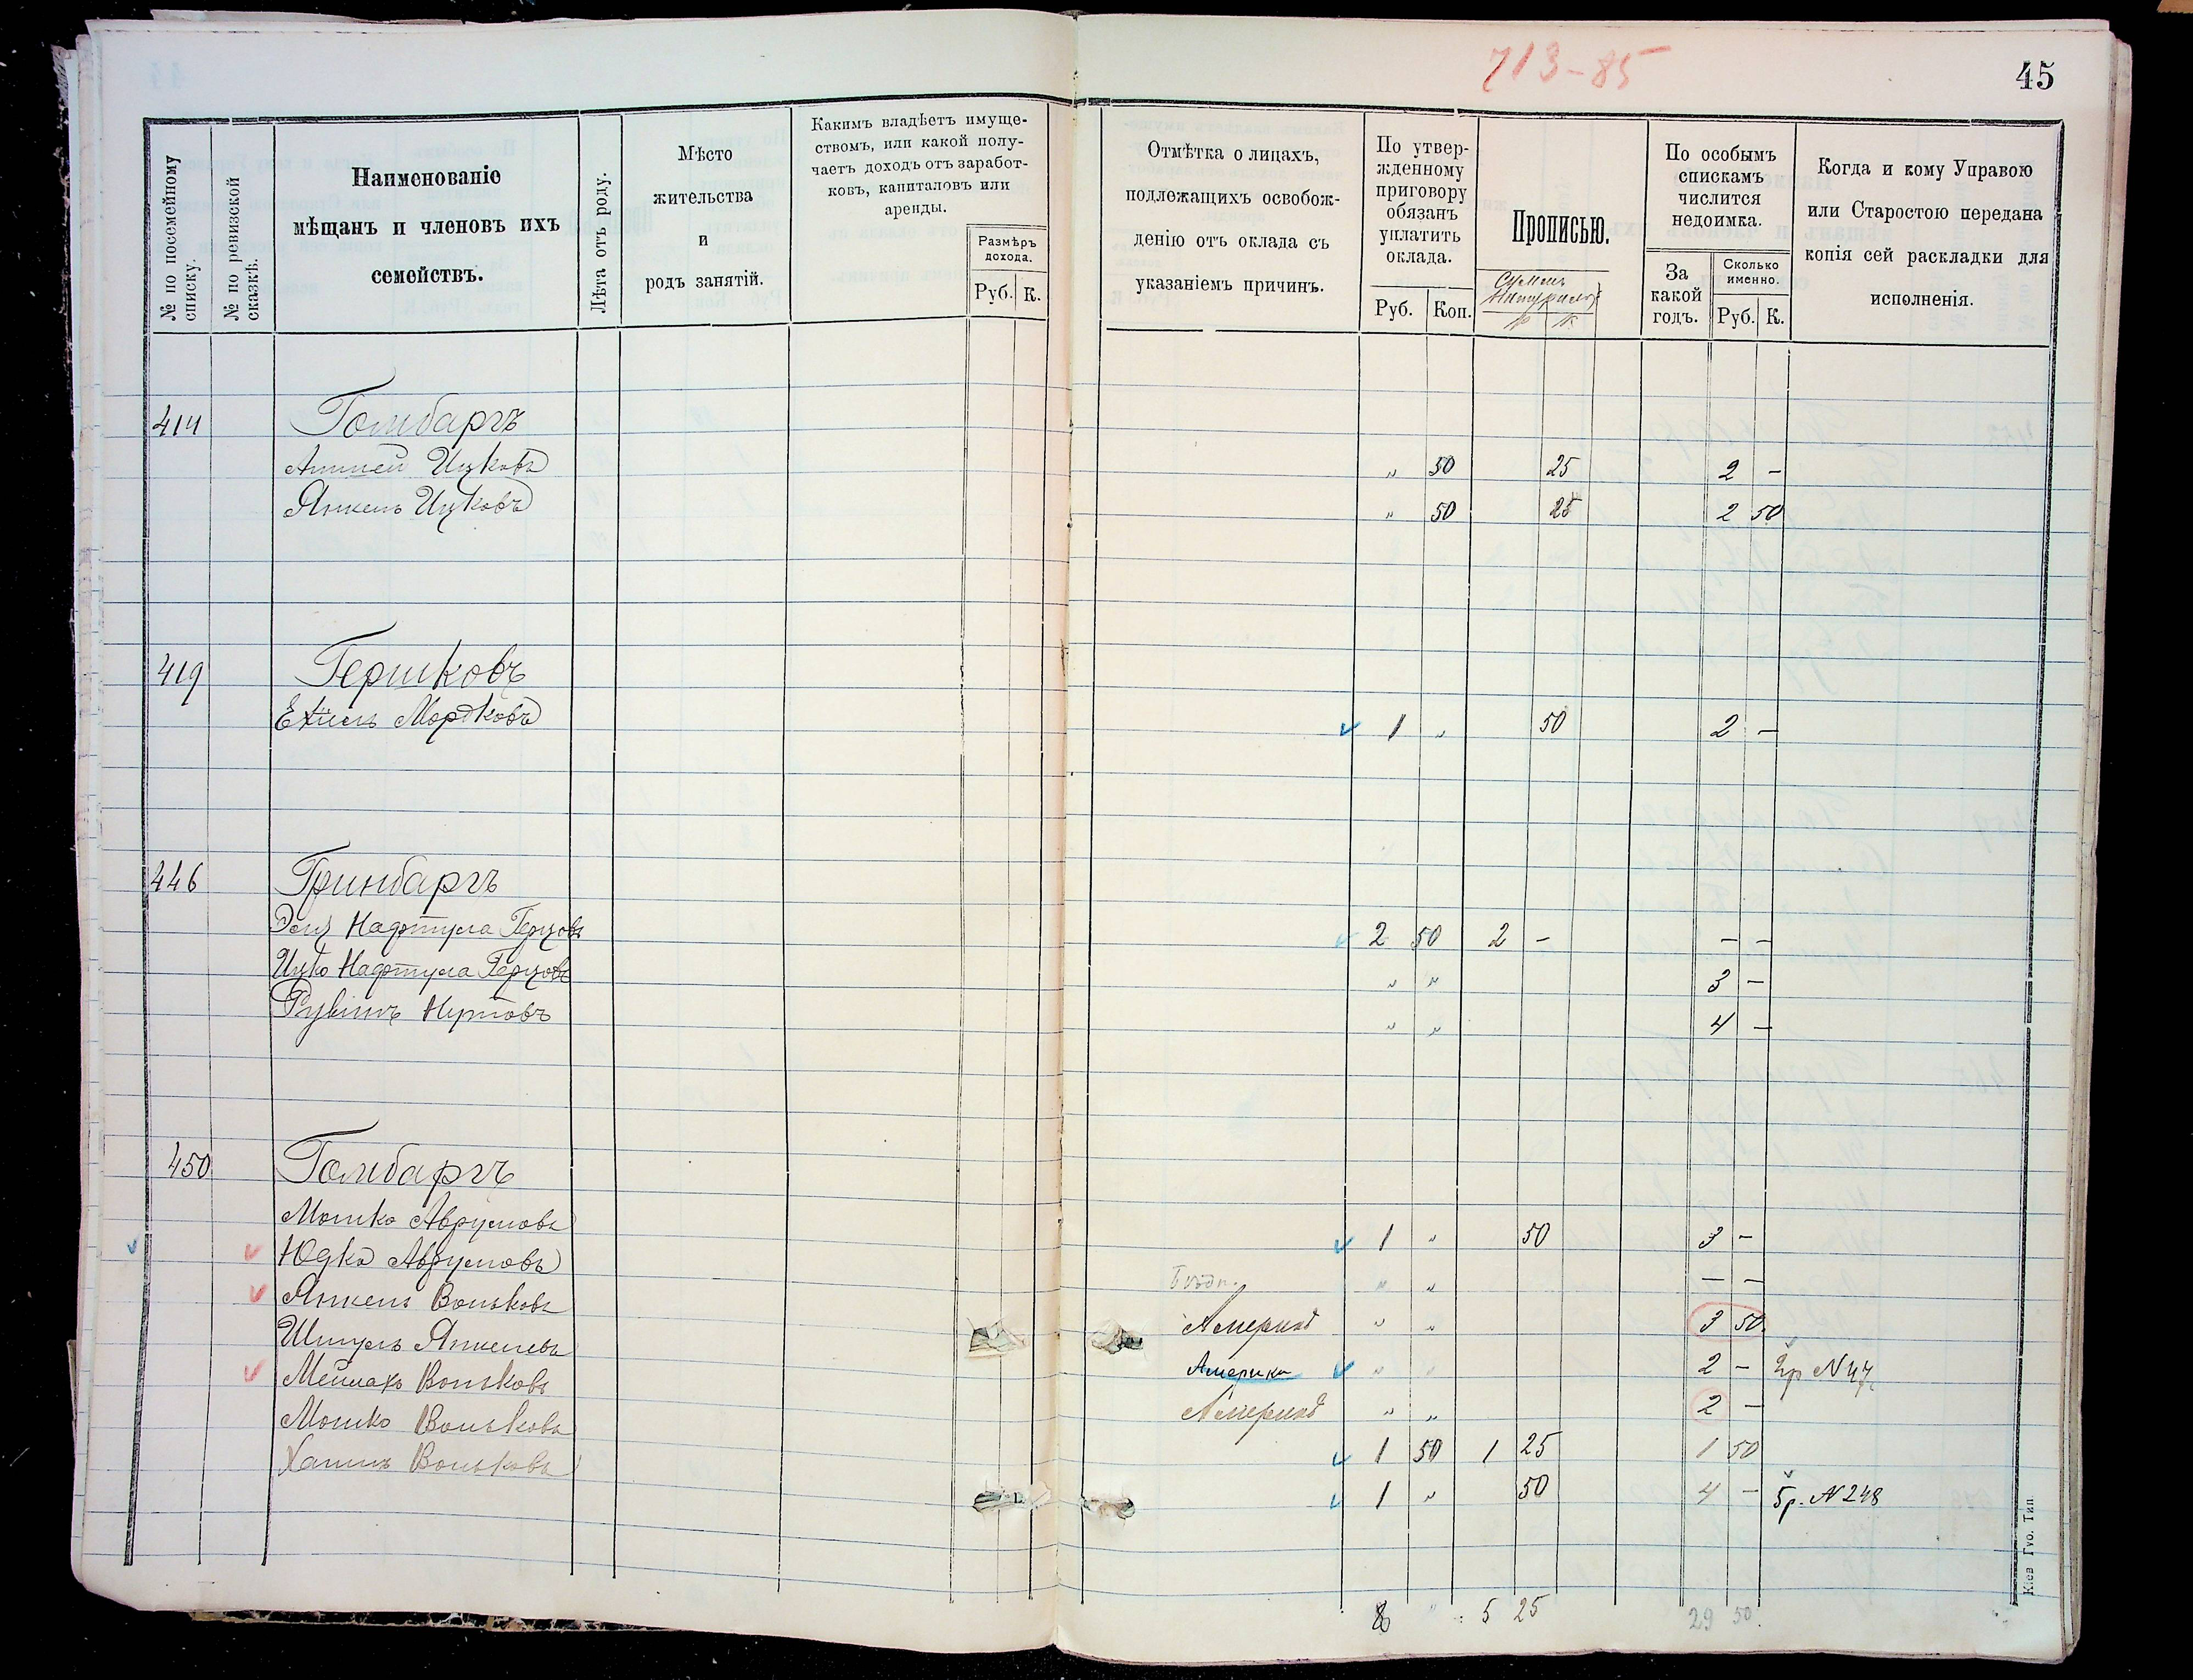 713-85
45
№ по посемейному списку.
№ по ревизской сказкѣ.
Наименованіе
мѣщанъ и членовъ ихъ
семействъ.
Лѣта отъ роду.
Мѣсто
жительства
и
родъ занятій.
Какимъ владѣетъ имуще-
ствомъ, или какой полу-
чаетъ доходъ отъ заработ-
ковъ, капиталовъ или
аренды.
Размѣръ
дохода.
Руб. К.
Отмѣтка о лицахъ,
подлежащихъ освобож-
денію отъ оклада съ
указаніемъ причинъ.
По утвер-
жденному
приговору
обязанъ
уплатить
оклада.
Руб. Коп.
Прописью.
По особымъ
спискамъ
числится
недоимка.
За
какой
годъ.
Сколько
именно.
Руб. К.
Когда и кому Управою
или Старостою передана
копія сей раскладки для
исполненія.
414 Гомбаргъ
Ицковъ " 50 25 2 -
Янкель Ицковъ " 50 25 2 50
419 Гершковъ
Ехіель Мордковъ 1 " 50 2 -
446 Гринбаргъ
Нафтула Герцовъ 2 50 2 - - -
Ицко Нафтула Герцовъ " " 3 -
Рувинъ " " 4 -
450 Гомбаргъ
Мошко Аврумовъ 1 " 50 3 -
Юдко Аврумовъ " " - -
Янкель Вольковъ Америка " " 3 50
Шмуль Янкелевъ Америка " " 2 - 2р N 47
Мейлахъ Вольковъ Америка " " 2 -
Мошко Вольковъ 1 50 1 25 1 50
Хаимъ Вольковъ 1 " 50 4 - 5р. N 248
8 " 5 25 29 50
Кіев Губ. Тип.